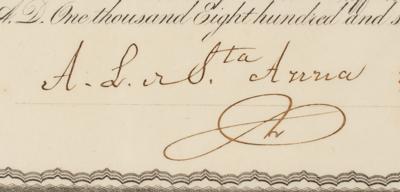 A.D. One thousand Eight hundred and s
A. L. r Sta Anna